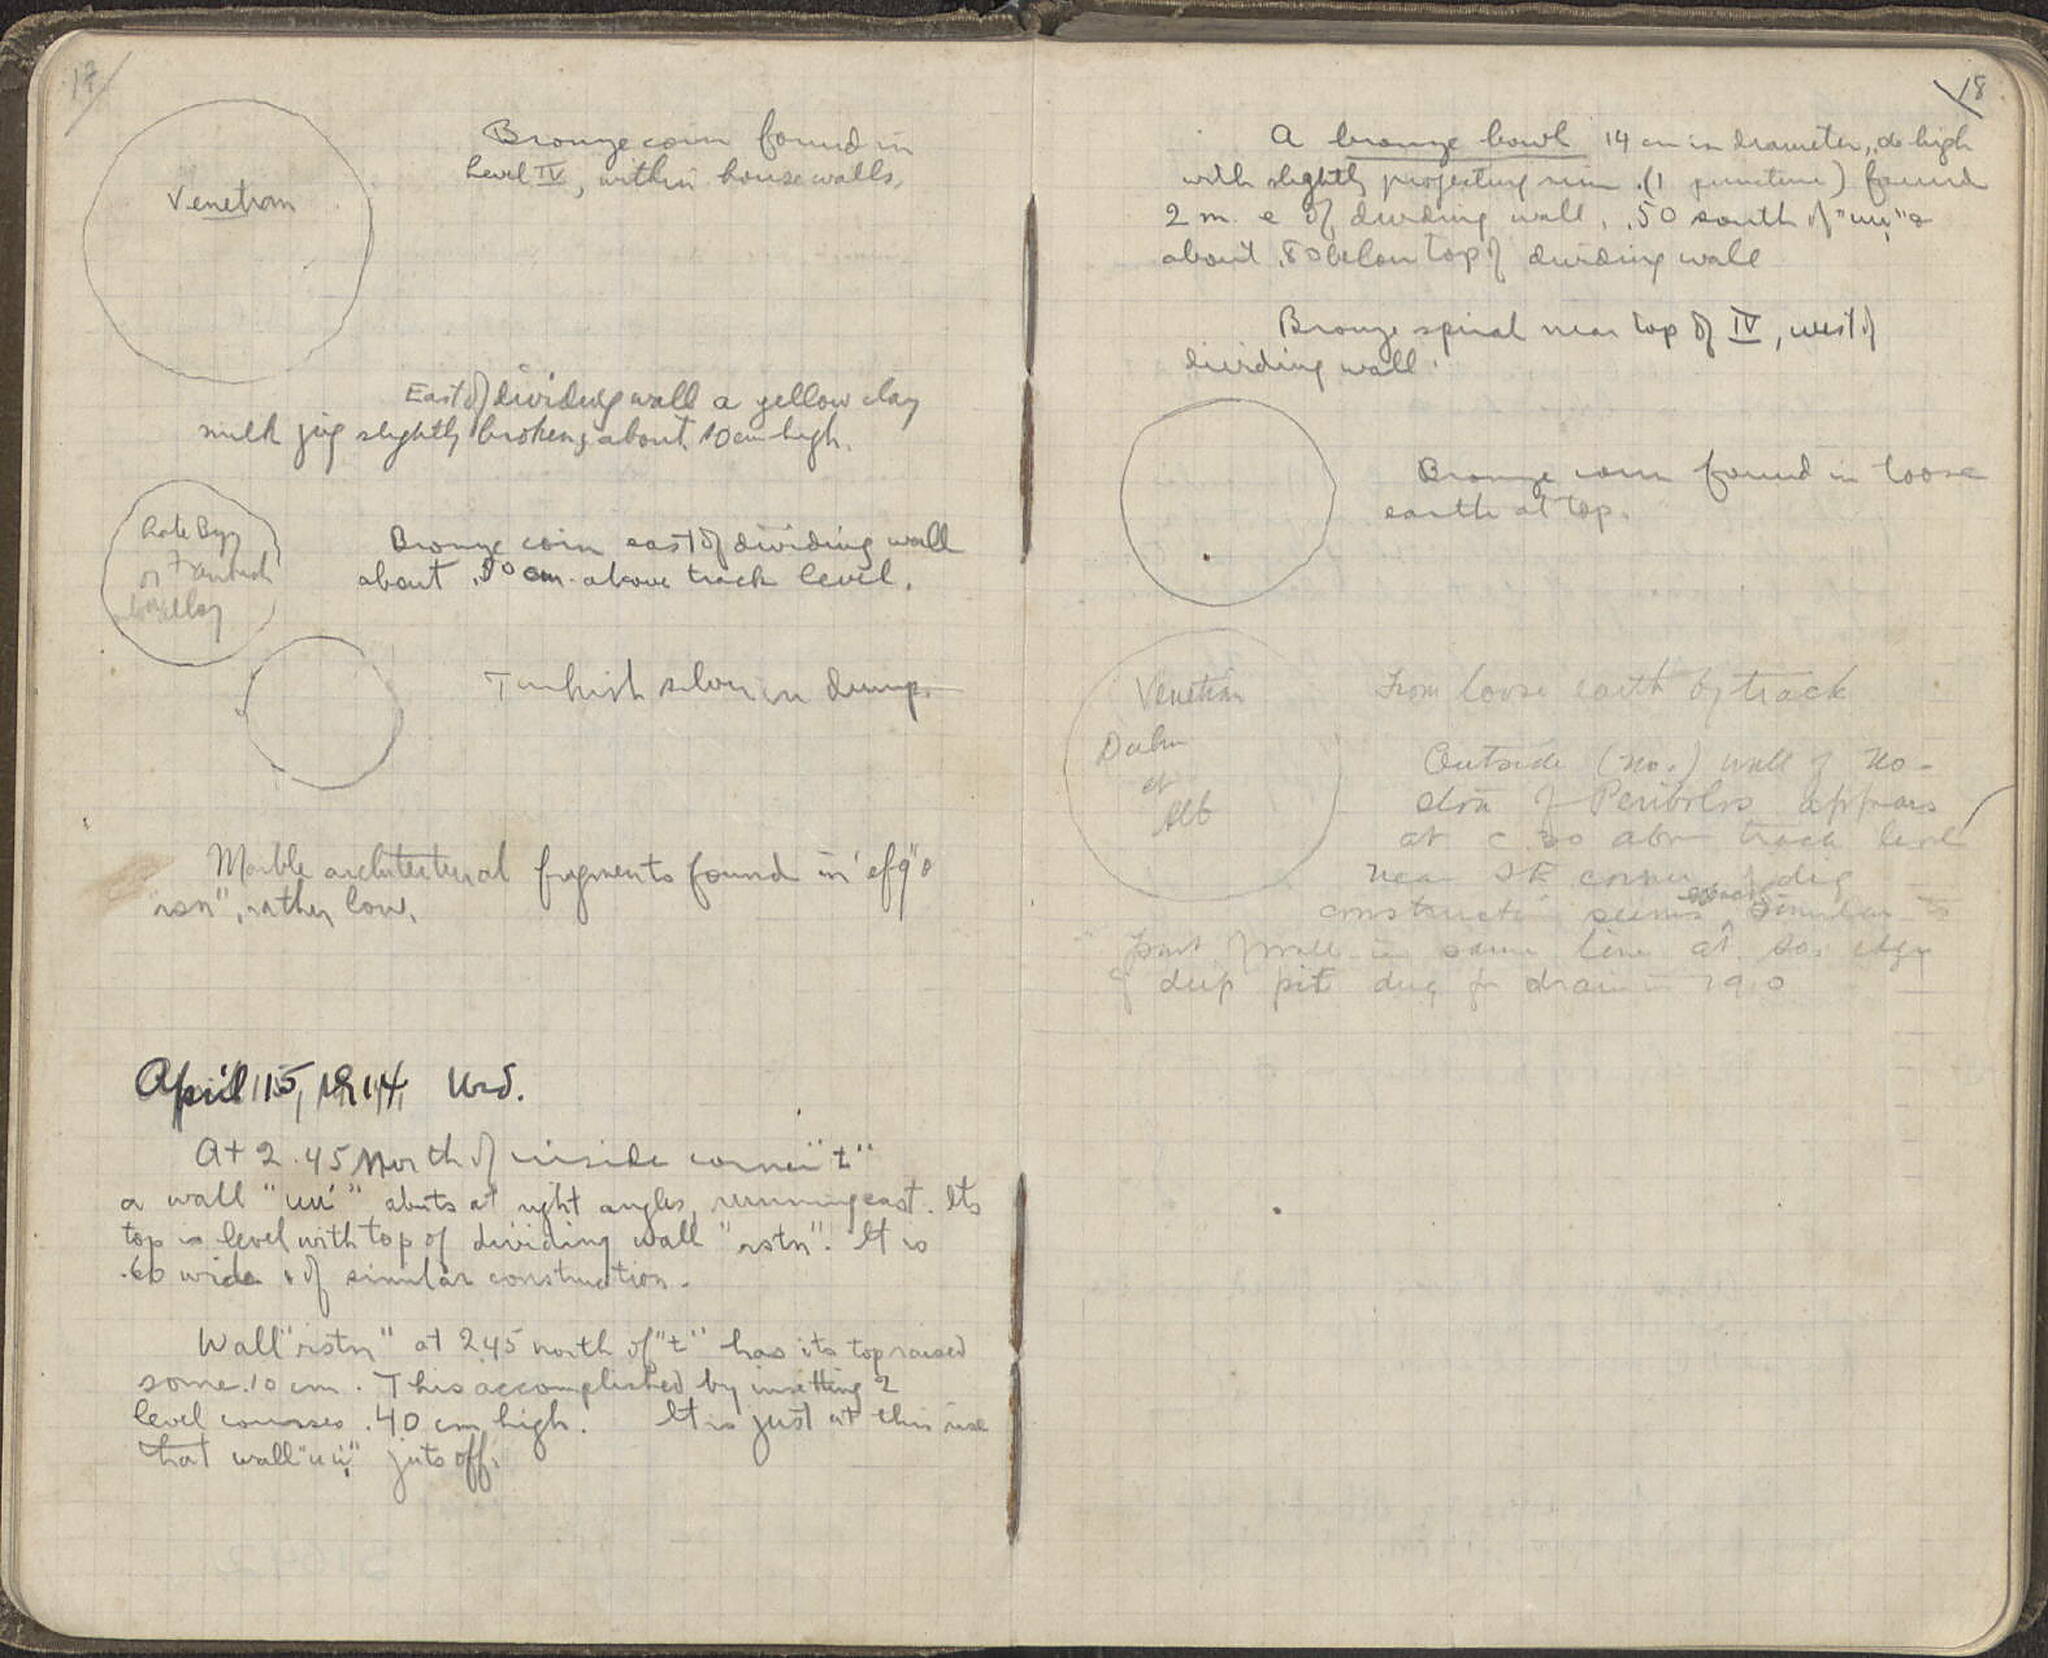 17
Venetian
Bronze coin found in
Level IV, within house walls.
East of dividing wall a yellow clay
milk jug slightly broken, about 10 cm high.
Late Byz
or Frankish
Bronze coin east of dividing wall
about .50 cm. above track level.
Turkish silver in dump.
Marble architectural fragments found in "efg" &
"rsn", rather low.
April 15, 1914, Wed.
At 2.45 North of inside corner "t"
a wall "uu'" abuts at right angles, running east. Its
top is level with top of dividing wall "rstn". It is
.60 wide & of similar construction.
Wall "rstn" at 2.45 north of "t" has its top raised
some .10 cm. This accomplished by insetting 2
level courses .40 cm high. It is just at this rise
that wall "uu," juts off.
18
A bronze bowl 14 cm in diameter, do high
with slightly projecting rim. (1 puncture) found
2 m. e of dividing wall, .50 south of "uu," &
about .80 below top of dividing wall
Bronze spiral near top of IV, west of
dividing wall.
Bronze coin found in loose
earth at top.
Venetian
Dalm
et
Alb
From loose earth by track
Outside (no.) wall of No-
stoa of Peribolos appears
at c .30 above track level
near SE corner of dig
construction seems exactly similar to
part of wall in same line at so. edge
of deep pit dug for drain in 1910